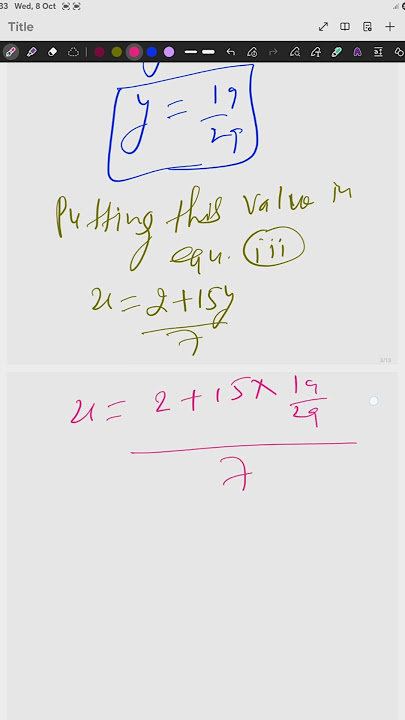 33 Wed, 8 Oct
Title
y = 19/29
Putting this value in
equ. (iii)
x = 2+15y/7
3/13
x = 2+15×19/29
7